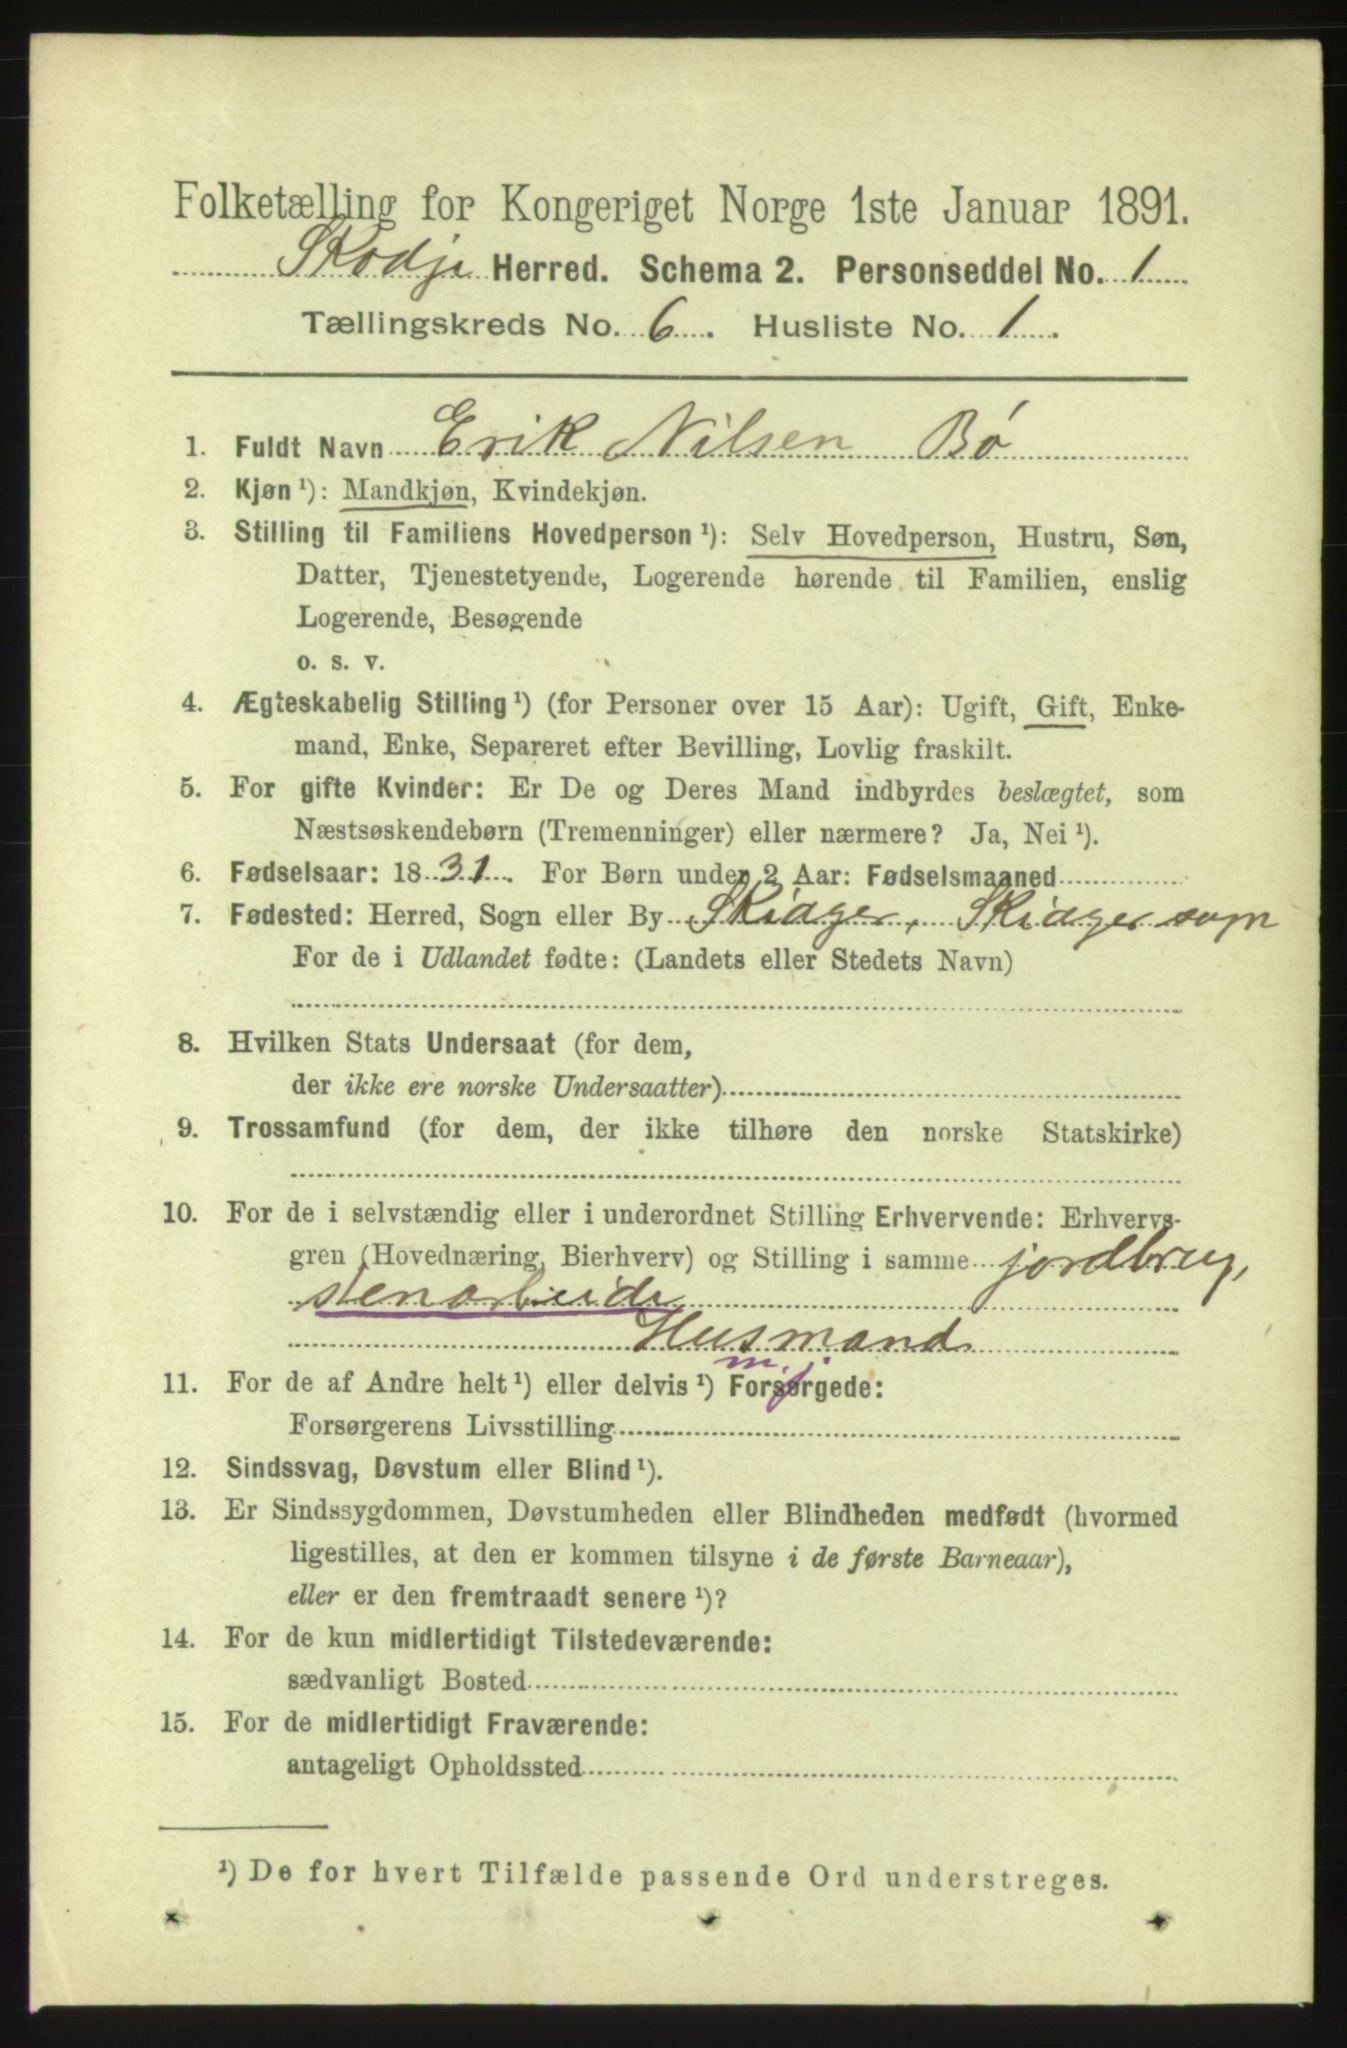 Folketælling for Kongeriget Norge 1ste Januar 1891.
Skodje Herred. Schema 2. Personseddel No. 1
Tællingskreds No. 6. Husliste No. 1.
1. Fuldt Navn Erik Nilsen Bø
2. Kjøn ¹): Mandkjøn, Kvindekjøn.
3. Stilling til Familiens Hovedperson ¹): Selv Hovedperson, Hustru, Søn,
Datter, Tjenestetyende, Logerende hørende til Familien, enslig
Logerende, Besøgende
o. s. v.
4. Ægteskabelig Stilling ¹) (for Personer over 15 Aar): Ugift, Gift, Enke-
mand, Enke, Separeret efter Bevilling, Lovlig fraskilt.
5. For gifte Kvinder: Er De og Deres Mand indbyrdes beslægtet, som
Næstsøskendebørn (Tremenninger) eller nærmere? Ja, Nei ¹).
6. Fødselsaar: 1831. For Børn under 2 Aar: Fødselsmaaned
7. Fødested: Herred, Sogn eller By Skiager, Skiager sogn
For de i Udlandet fødte: (Landets eller Stedets Navn)
8. Hvilken Stats Undersaat (for dem,
der ikke ere norske Undersaatter)
9. Trossamfund (for dem, der ikke tilhøre den norske Statskirke)
10. For de i selvstændig eller i underordnet Stilling Erhvervende: Erhvervs-
gren (Hovednæring, Bierhverv) og Stilling i samme jordbrug,
stenarbeide
Husmand
m. j.
11. For de af Andre helt ¹) eller delvis ¹) Forsørgede:
Forsørgerens Livsstilling
12. Sindssvag, Døvstum eller Blind ¹).
13. Er Sindssygdommen, Døvstumheden eller Blindheden medfødt (hvormed
ligestilles, at den er kommen tilsyne i de første Barneaar),
eller er den fremtraadt senere ¹)?
14. For de kun midlertidigt Tilstedeværende:
sædvanligt Bosted
15. For de midlertidigt Fraværende:
antageligt Opholdssted
¹) De for hvert Tilfælde passende Ord understreges.